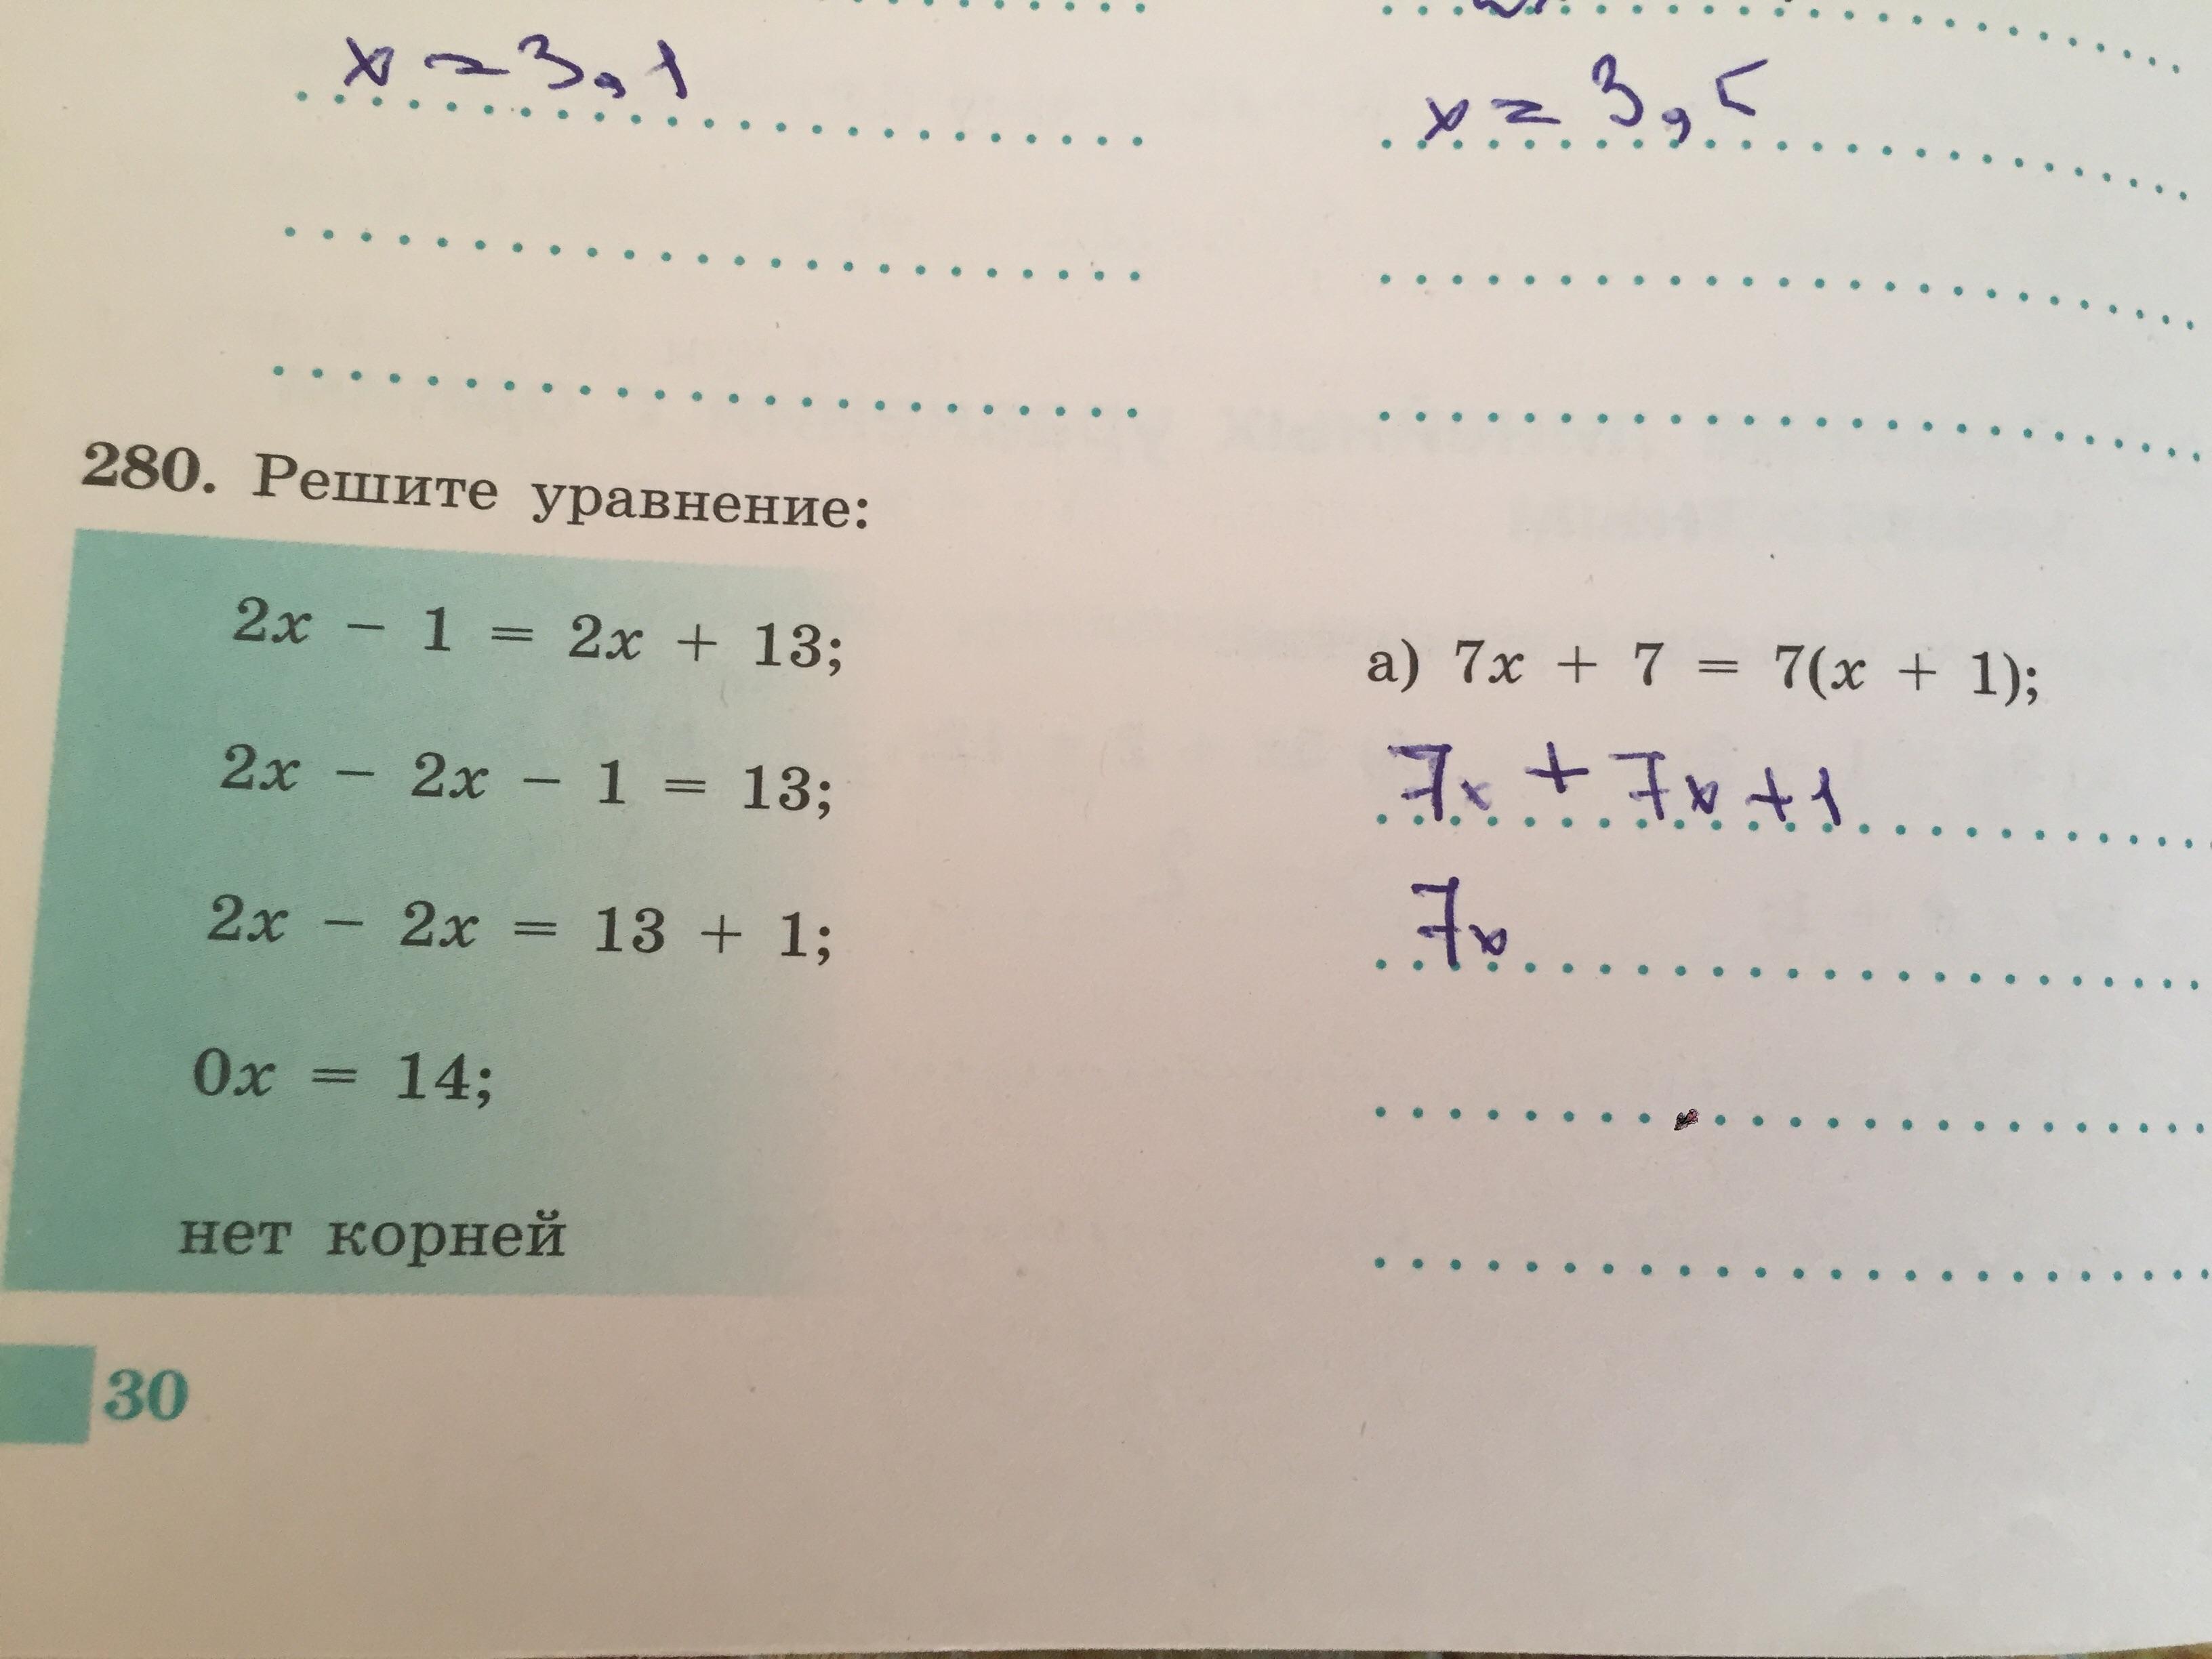 x = 3,1
x = 3,5
280. Решите уравнение:
2x − 1 = 2x + 13;
2x − 2x − 1 = 13;
2x − 2x = 13 + 1;
0x = 14;
нет корней
а) 7x + 7 = 7(x + 1);
7x + 7x + 1
7x
30